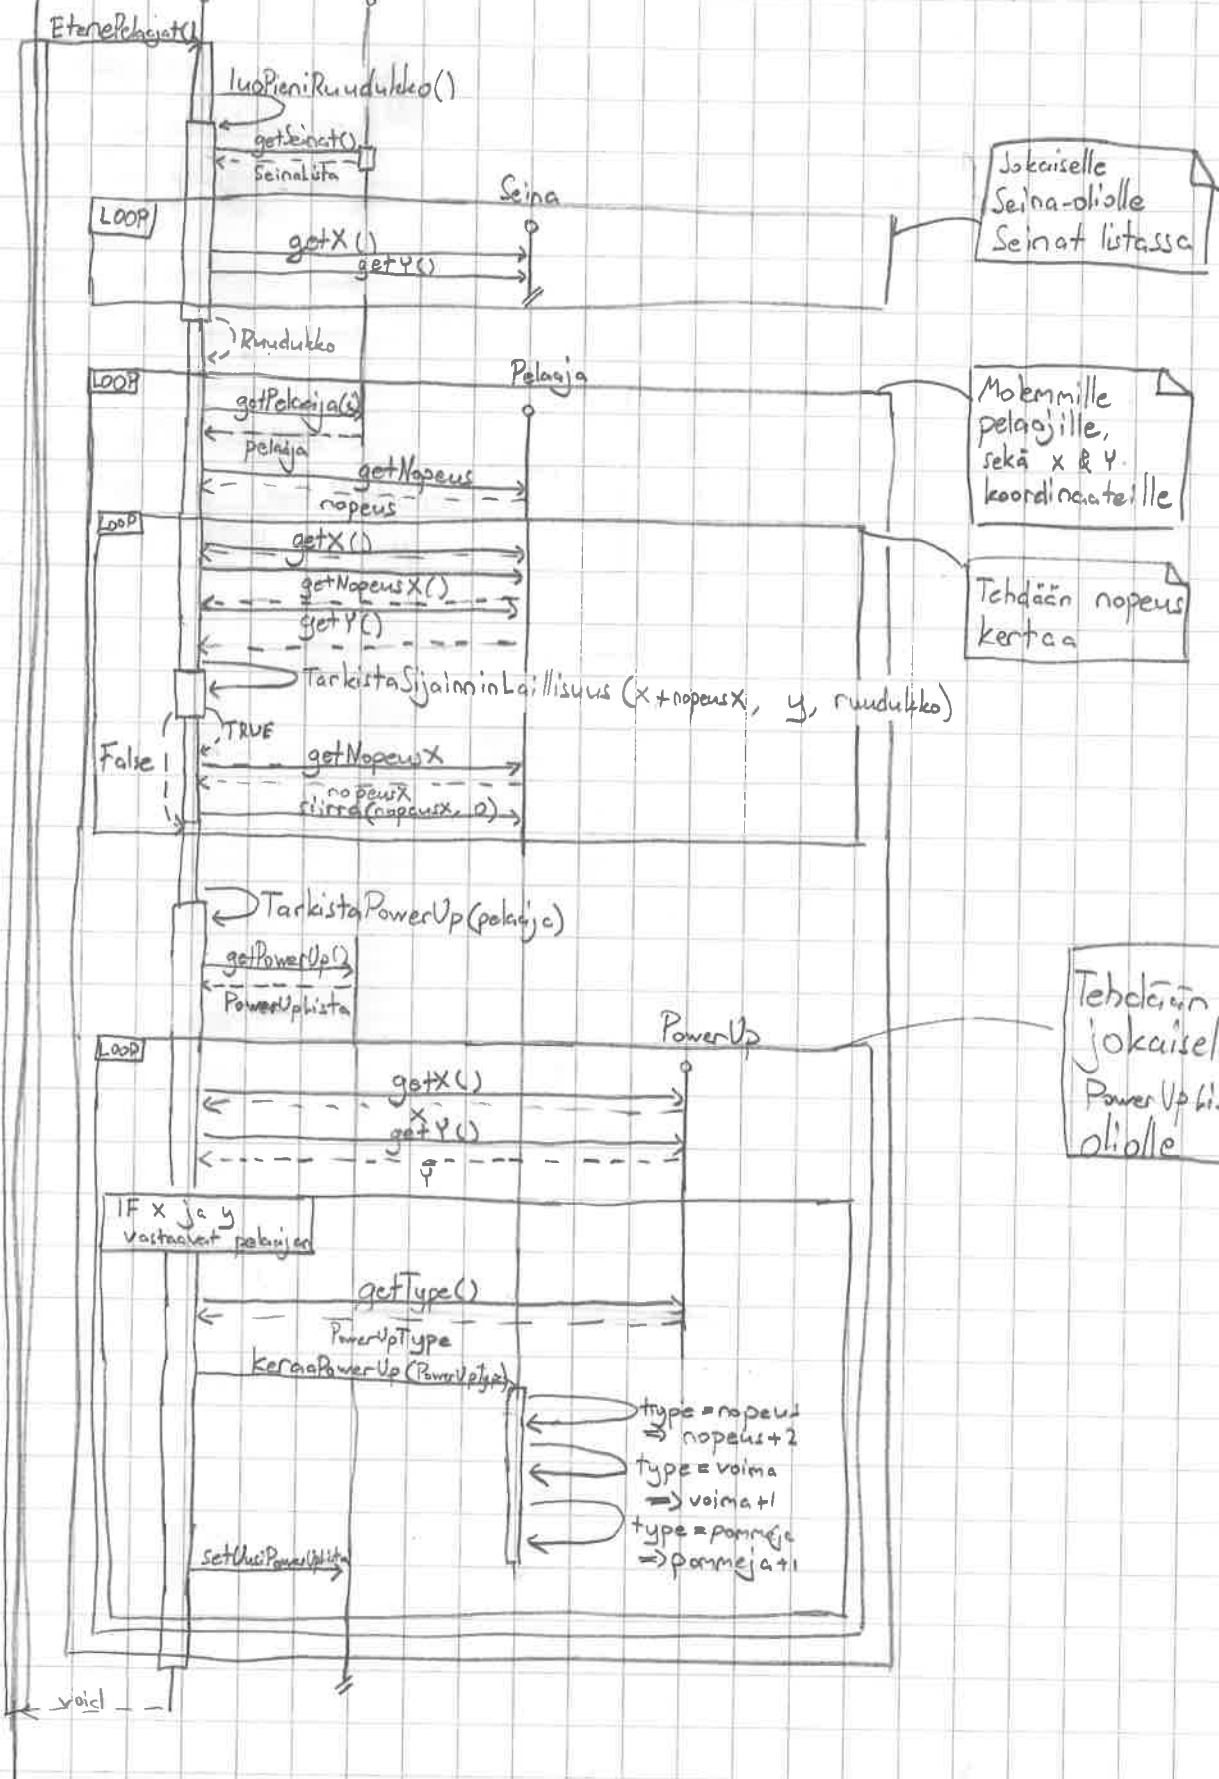 EtenePelaajat()
luoPieniRuudukko()
getSeinat()
SeinaLista
Seina
LOOP
getX()
getY()
Jokaiselle
Seina-oliolle
Seinat listassa
Ruudukko
LOOP
Pelaaja
getPelaaja(s)
pelaaja
getNopeus
nopeus
Molemmille
pelaajille,
sekä x & y
koordinaateille
LOOP
getX()
getNopeusX()
getY()
Tehdään nopeus
kertaa
TarkistaSijainninLaillisuus(x+nopeusx, y, ruudukko)
TRUE
False
getNopeusX
nopeusX
siirra(nopeusx, 0)
TarkistaPowerUp(pelaaja)
getPowerUp()
PowerUpLista
LOOP
PowerUp
Tehdään
jokaisel
PowerUpLi
oliolle
getX()
X
getY()
Y
IF x ja y
vastaavat pelaajan
getType()
PowerUpType
keraaPowerUp(PowerUpType)
type=nopeus
=> nopeus+2
type=voima
=> voima+1
type=pommeja
=> pommeja+1
setUusiPowerUpLista
void